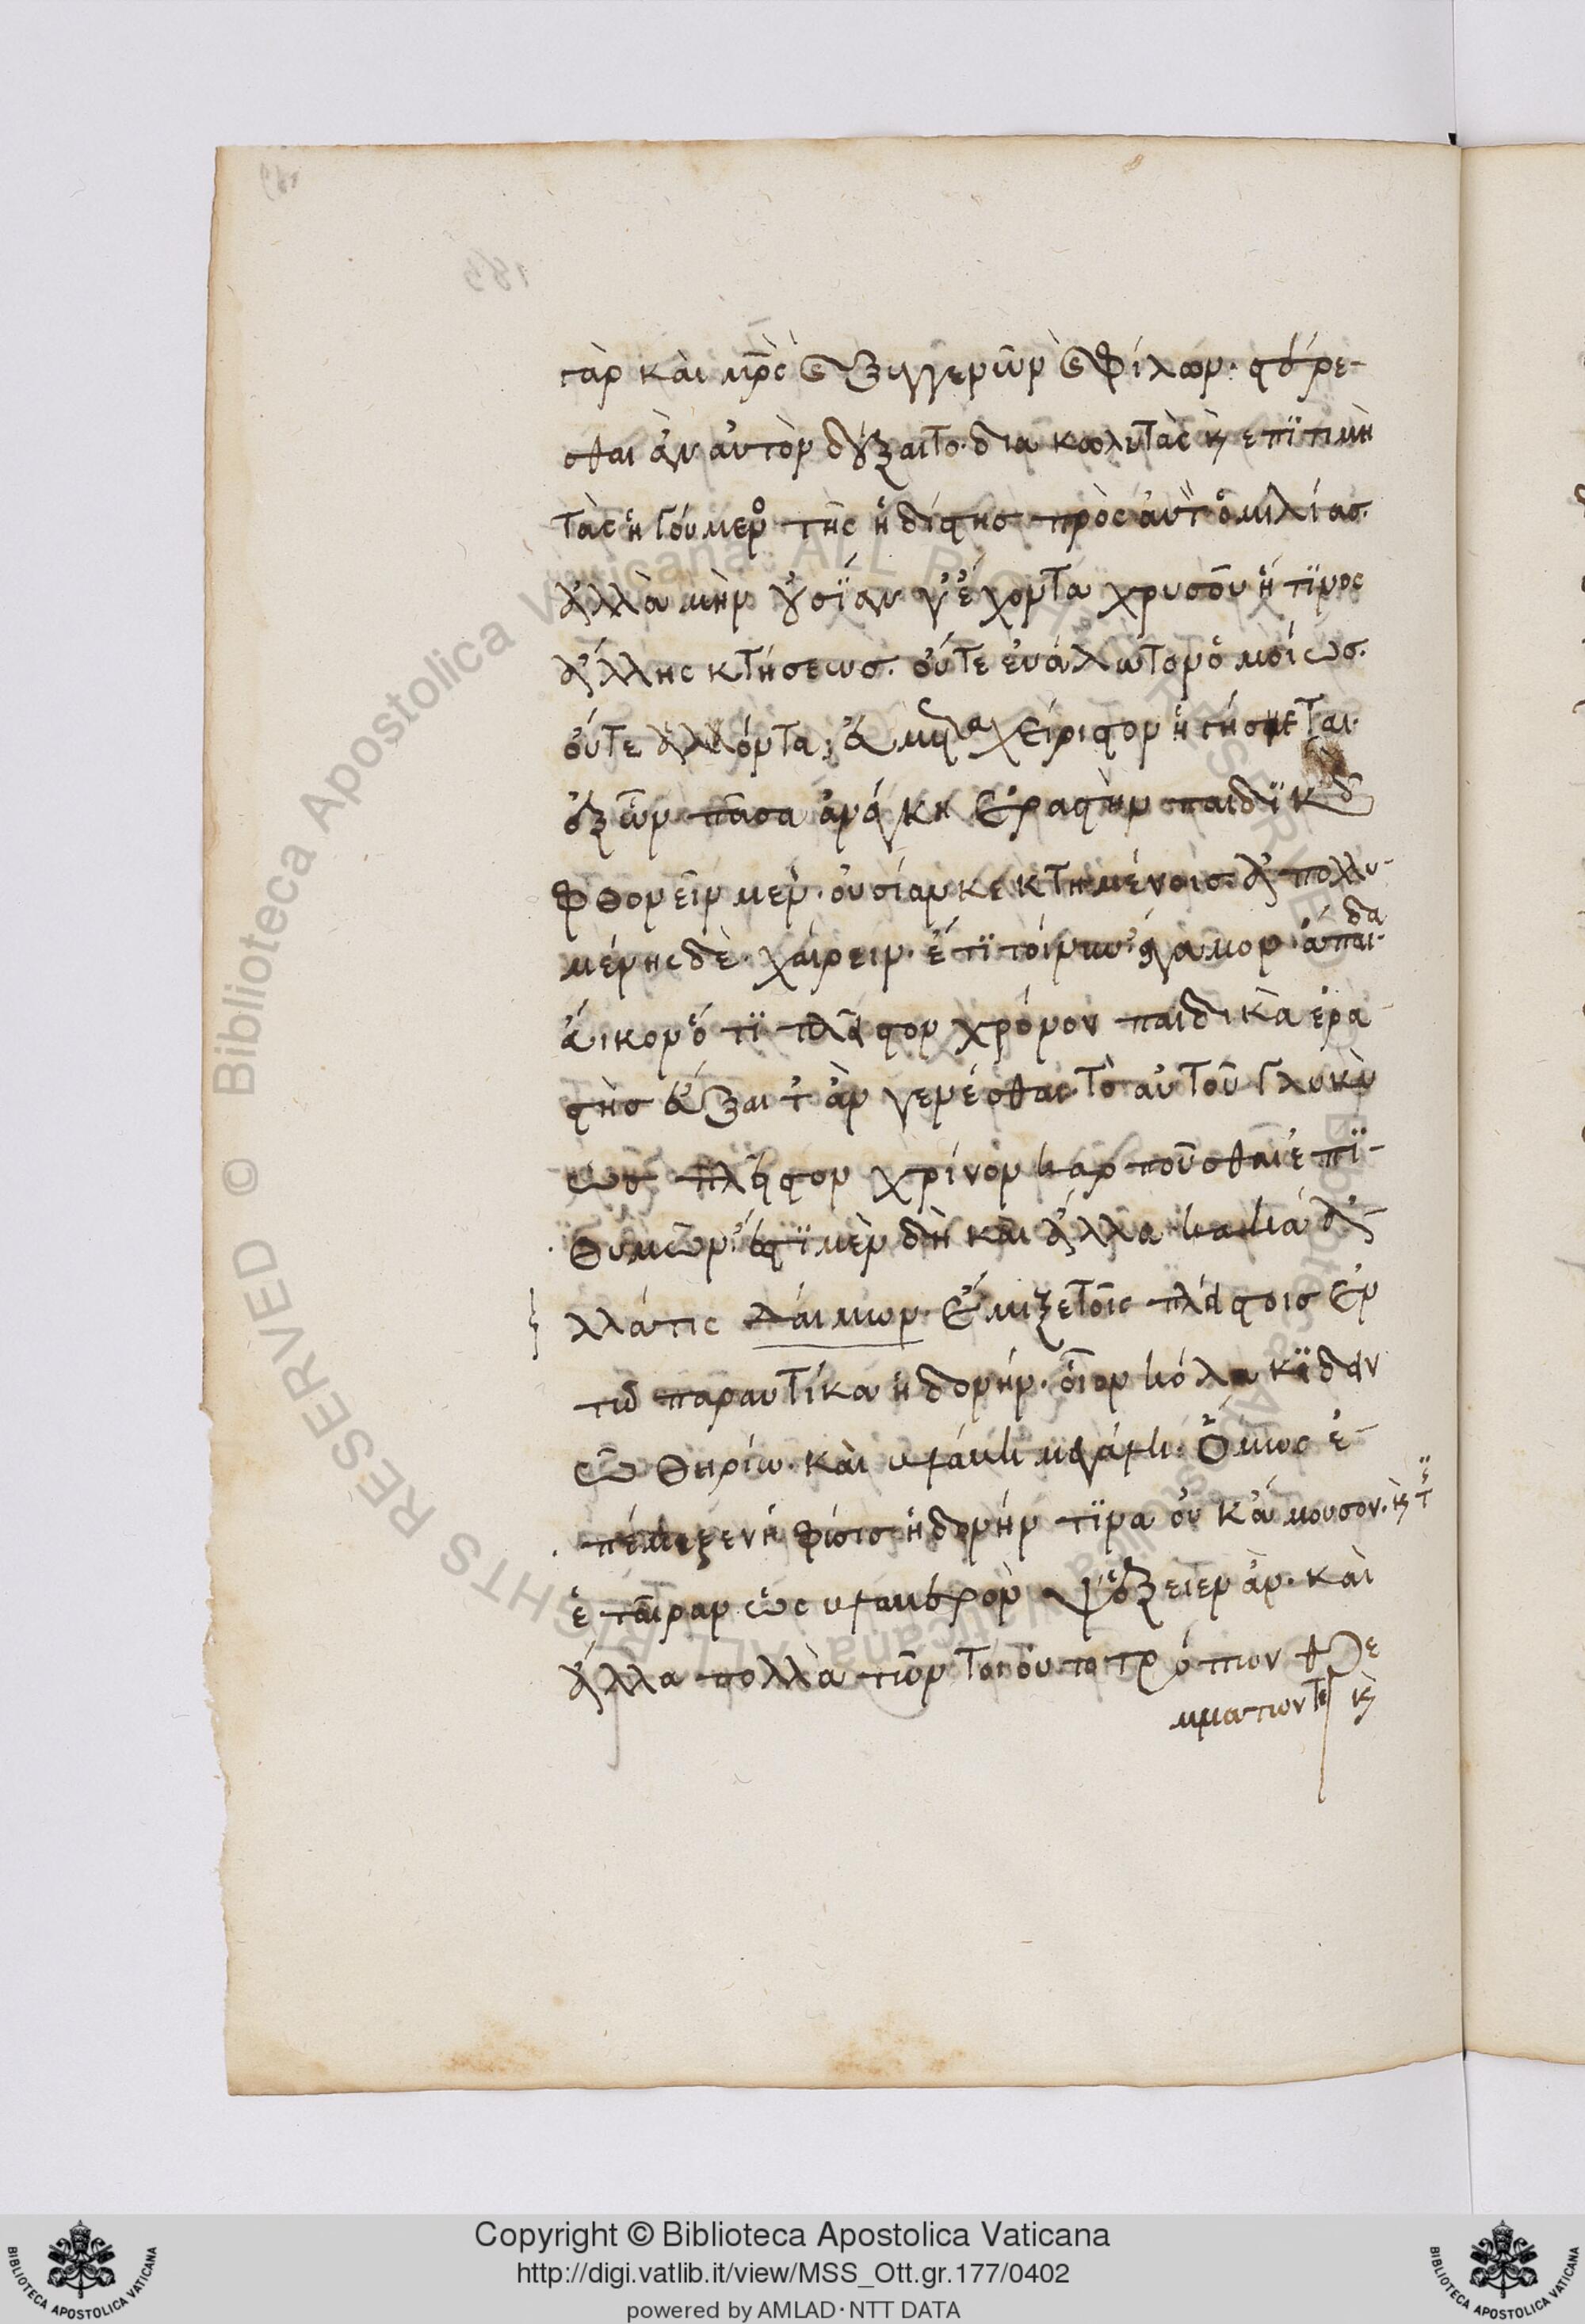 γὰρ καὶ μρ̅ὸς καὶ ξυγγενῶν καὶ φίλων. στέρε-
σθαι ἂν αὐτὸν δέξαιτο. διακωλυτὰς καὶ ἐπϊτιμη
τὰς ἡγούμενος τῆς ἡδίστης πρὸς αὐτὸν ὁμιλίας.
ἀλλὰ μὴν οὐσΐαν γ' ἔχοντα χρυσοῦ ἤ τϊνος
ἄλλης κτήσεως. οὔτε εὐάλωτον ὁμοίως.
οὔτε ἁλόντα, εὐμεταχείριστον ἡγήσεται.
ἐξ ὧν πᾶσα ἀνάγκη ἐραστὴν παιδϊκοῖς
φθονεῖν μὲν. οὐσίαν κεκτημένοις. ἀπολλυ-
μένης δὲ χαίρειν. ἔτϊ τοίνυν ἄγαμον. ἄπαιδα
ἄοικον ὅτϊ πλεῖστον χρόνον παιδικὰ ἐρα
στὴς εὔξαιτ' ἂν γενέσθαι. τὸ αὐτοῦ γλυκὺ
ὡς πλεῖστον χρόνον καρποῦσθαι ἐπϊ-
θυμῶν. ἔστϊ μὲν δὴ καὶ ἄλλα κακά ἀ-
λλά τις δαίμων. ἔμιξε τοῖς πλείστοις ἐν
τῶ παραυτίκα ἡδονήν. οἷον κόλακϊ δειν
ῶ θηρίω. καὶ βλάβη μεγάλη. ὅμως ἐ-
πέμιξεν ἡ φύσις ἡδονήν τϊνα οὐκ ἄμουσον. καὶ τ
ἑταίραν ὡς βλαβερὸν ψέξειεν ἄν. καὶ
ἄλλα πολλὰ τῶν τοιουτοτρόπων θρε
μμάτων τε καὶ
Copyright © Biblioteca Apostolica Vaticana
http://digi.vatlib.it/view/MSS_Ott.gr.177/0402
powered by AMLAD·NTT DATA